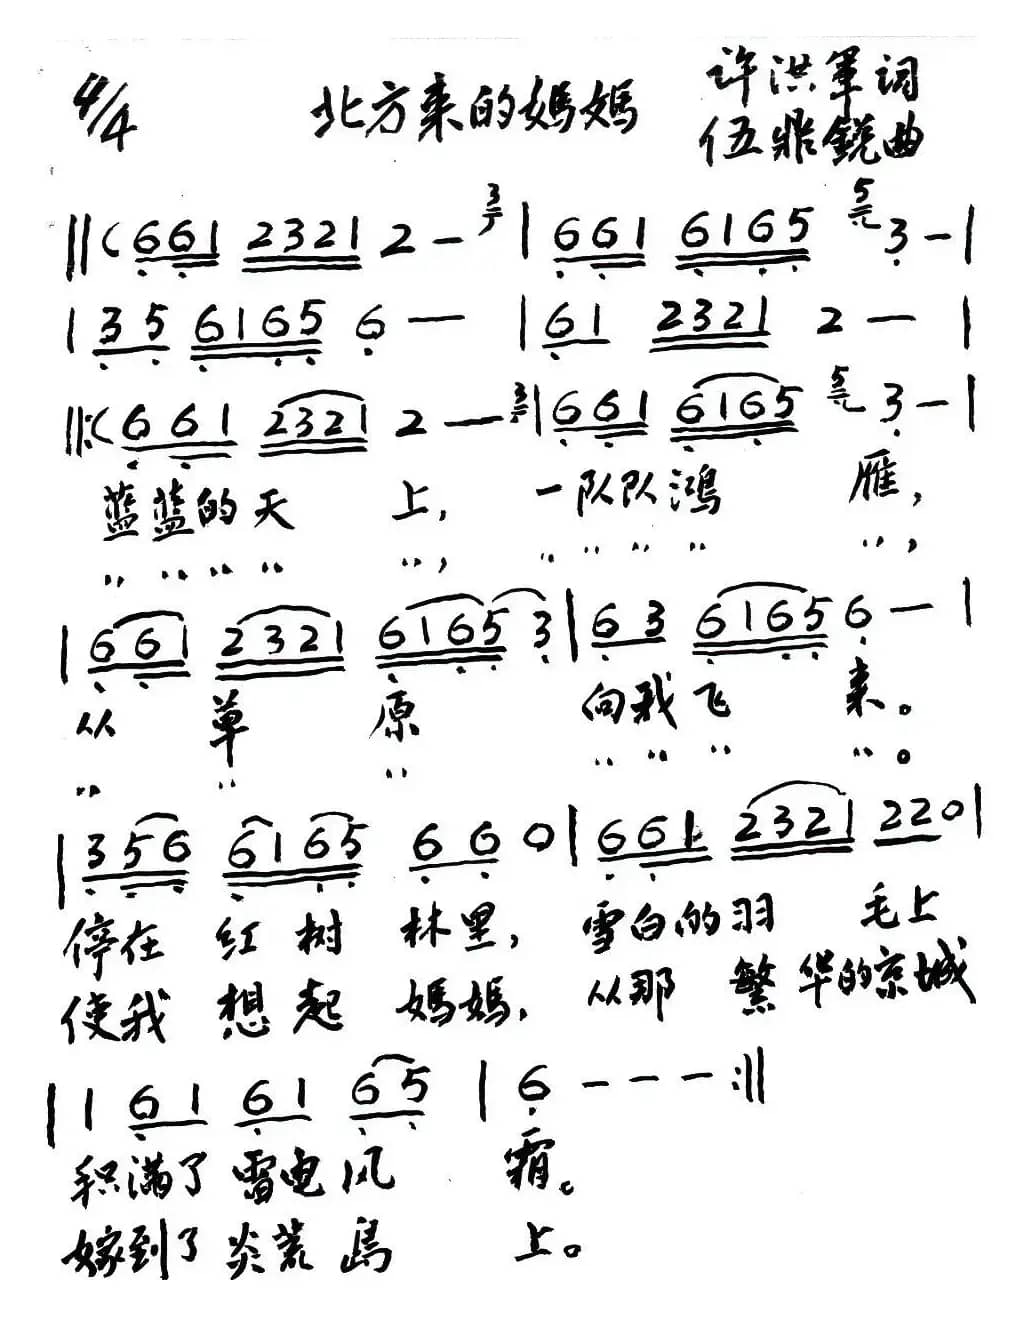 4/4 北方来的媽媽 许洪軍词
伍鼎銳曲
||(661 2321 2 — 3 | 661 6165 5 3 — |
| 35 6165 6 — | 61 2321 2 — |
||:(661 2321 2 — 3 | 661 6165 5 3 — |
蓝蓝的天 上, 一队队鸿 雁,
〃 〃 〃 〃 〃, 〃 〃 〃 〃 〃,
| 661 2321 6165 3 | 63 6165 6 — |
从 草 原 向我飞 来。
〃 〃 〃 〃 〃 〃 〃。
| 356 6165 66 0 | 661 2321 220 |
停在 红 树 林里, 雪白的羽 毛上
使我 想 起 媽媽, 从那 繁 华的京城
| 1 61 61 65 | 6 - - - :||
积满了 雷电风 霜。
嫁到了 炎荒島 上。